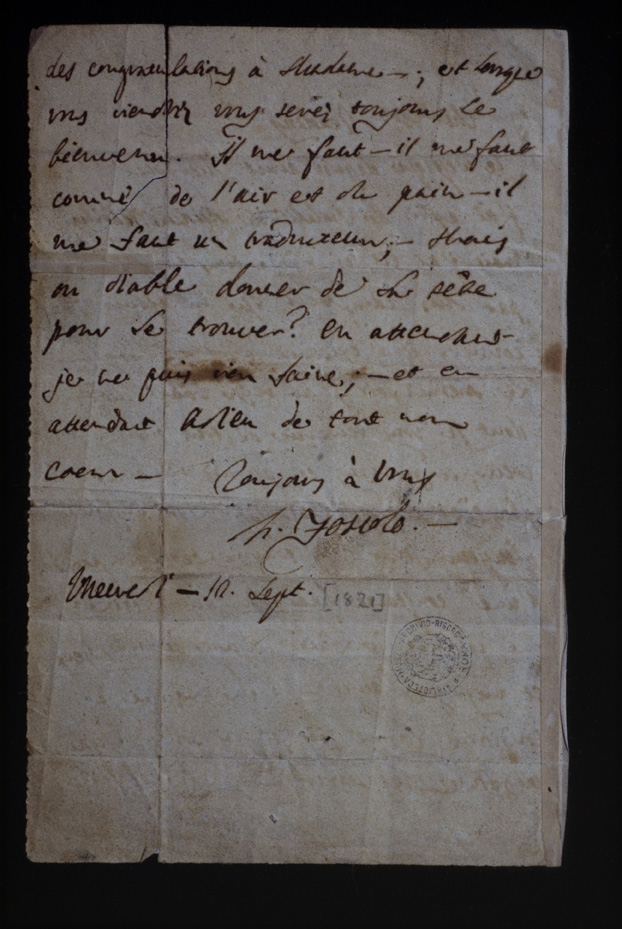 des congratulations à Madame — ; et lorsque
vous viendrez vous serez toujours le
bienvenu. Il me faut — il me faut
comme de l'air et du pain — il
me faut un traducteur ; — Mais
où diable donner de la tête
pour le trouver? En attendant
je ne puis rien faire ; — et en
attendant adieu de tout mon
coeur — Toujours à Vous
Foscolo. —
Mercredi — 12. Sept. [1821]